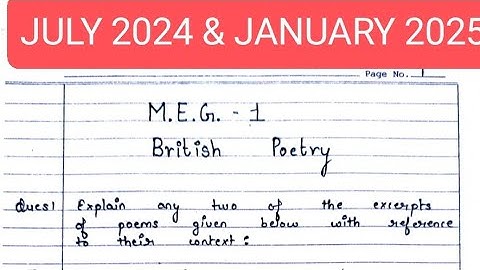 JULY 2024 & JANUARY 2025
Page No. 1
M.E.G. - 1
British Poetry
Ques1 Explain any two of the excerpts
of poems given below with reference
to their context :